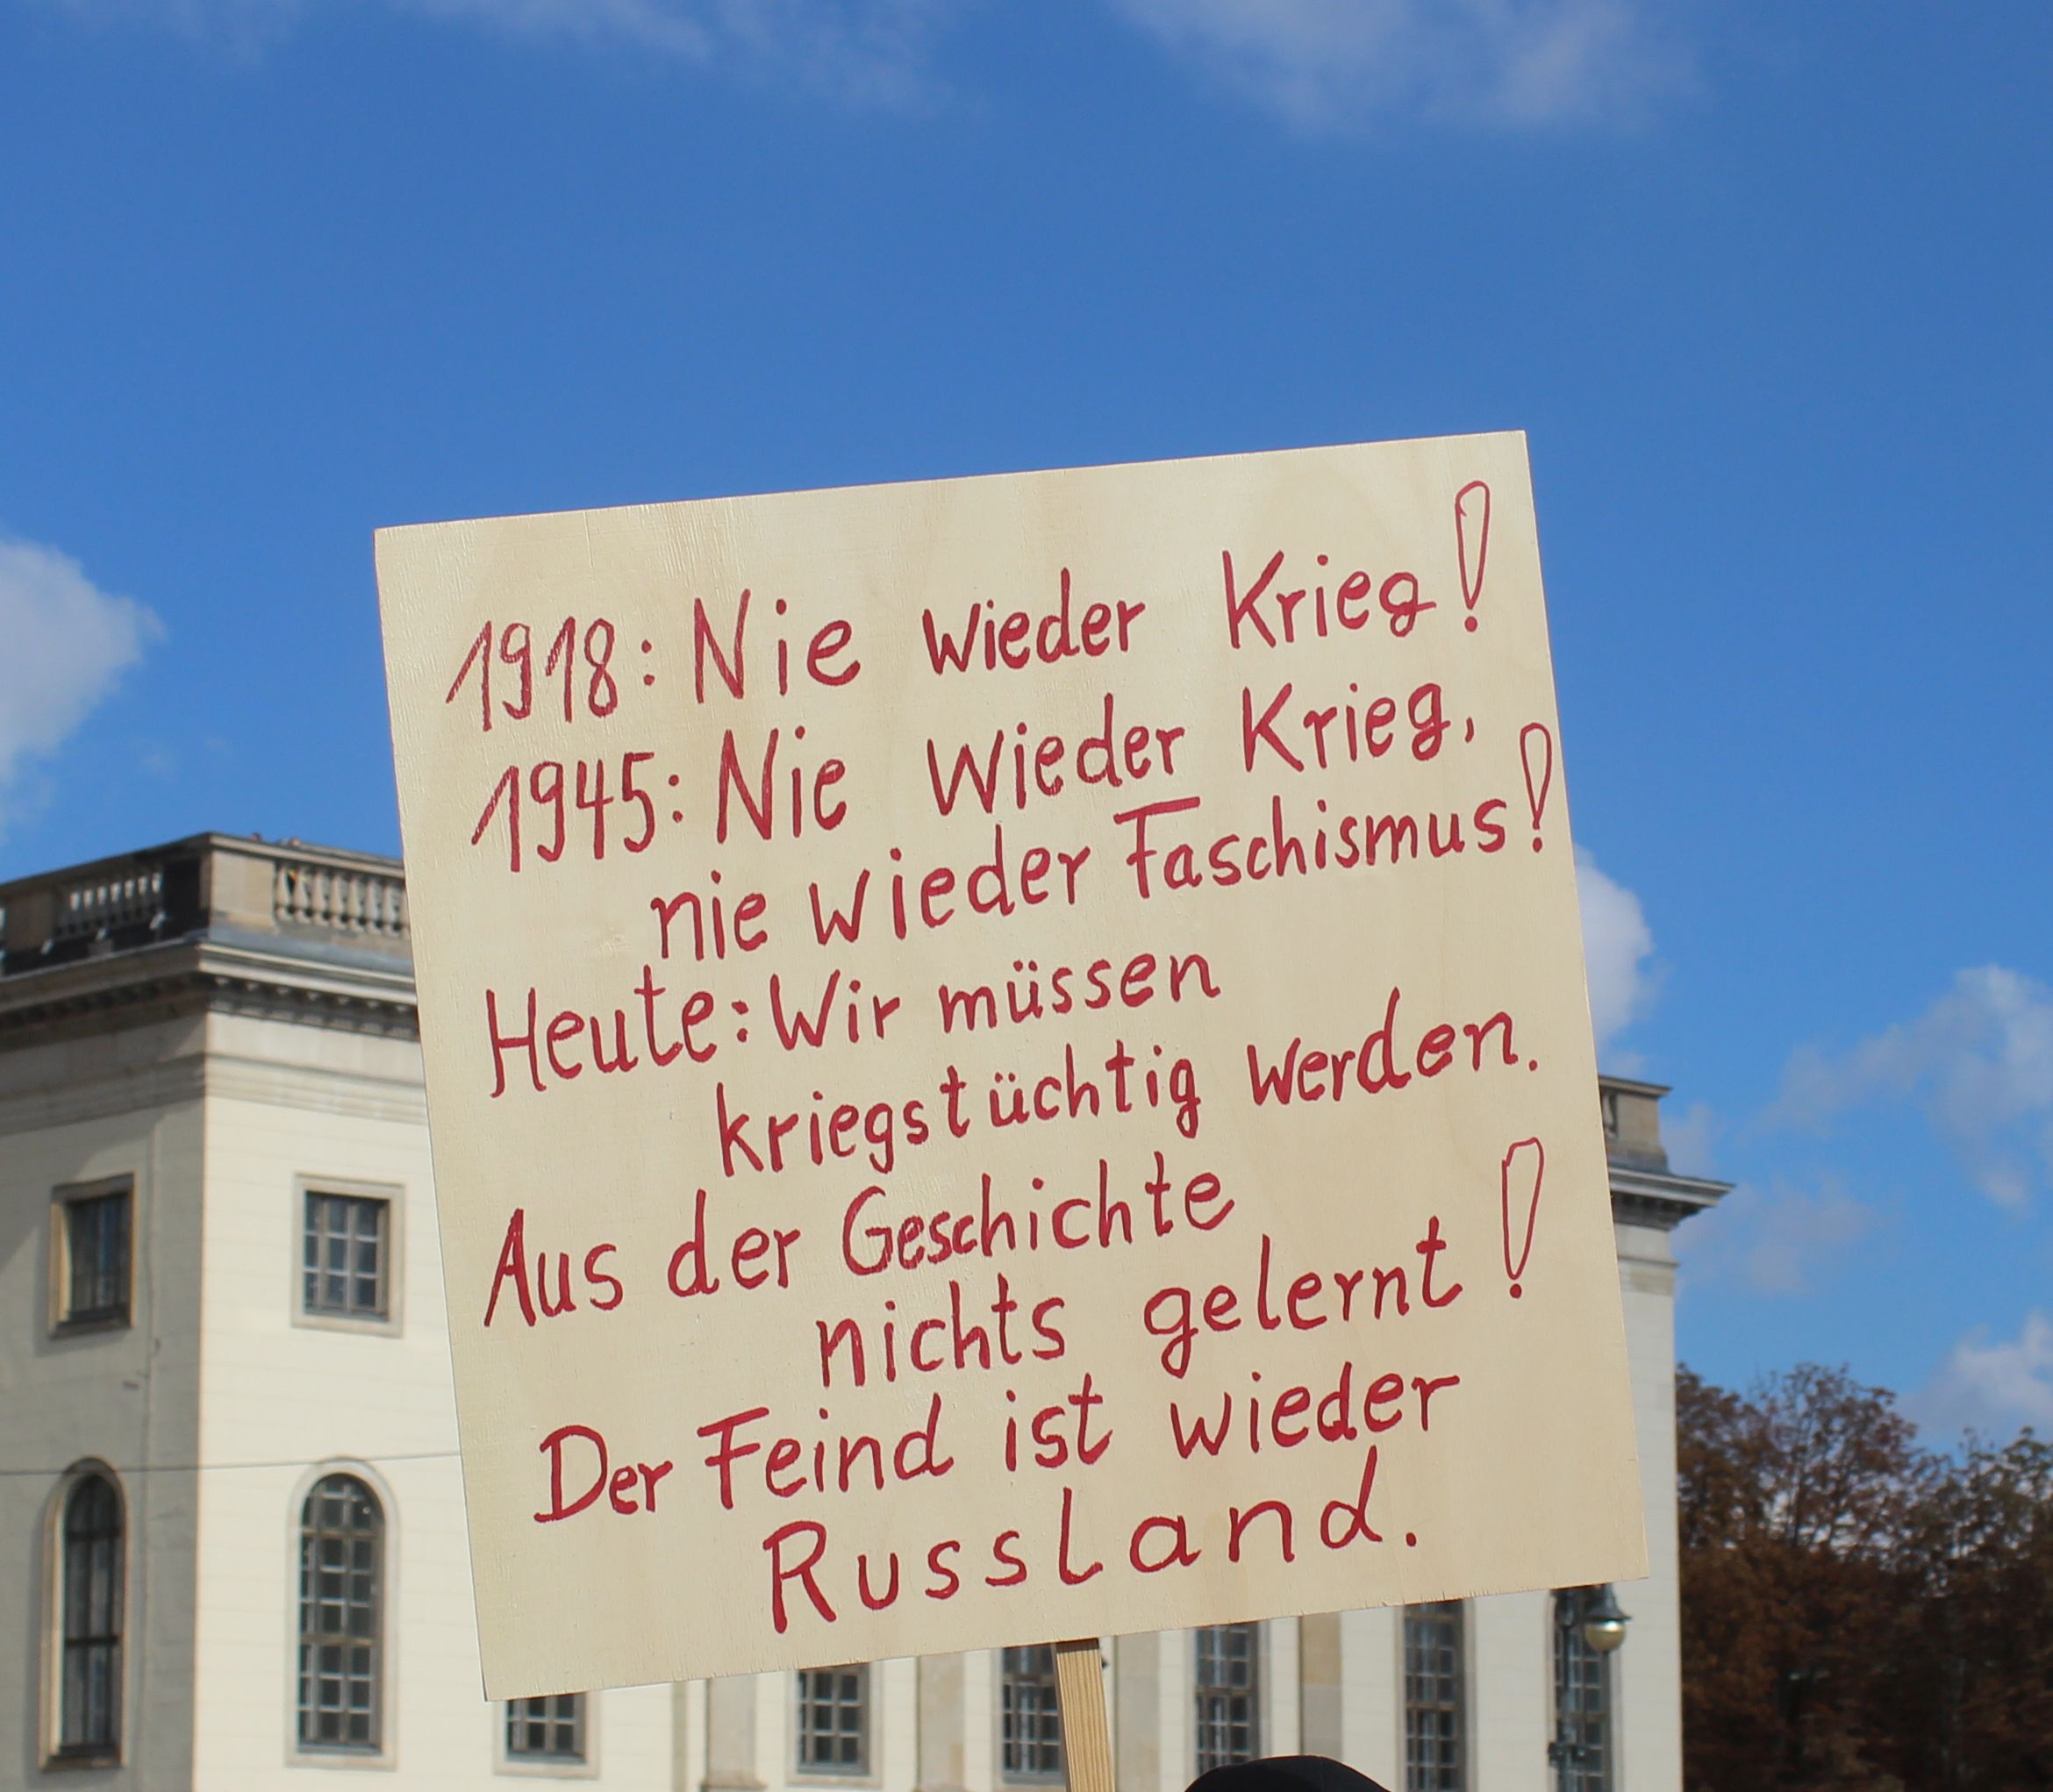 1918: Nie wieder Krieg!
1945: Nie wieder Krieg,
nie wieder Faschismus!
Heute: Wir müssen
kriegstüchtig werden.
Aus der Geschichte
nichts gelernt!
Der Feind ist wieder
Russland.